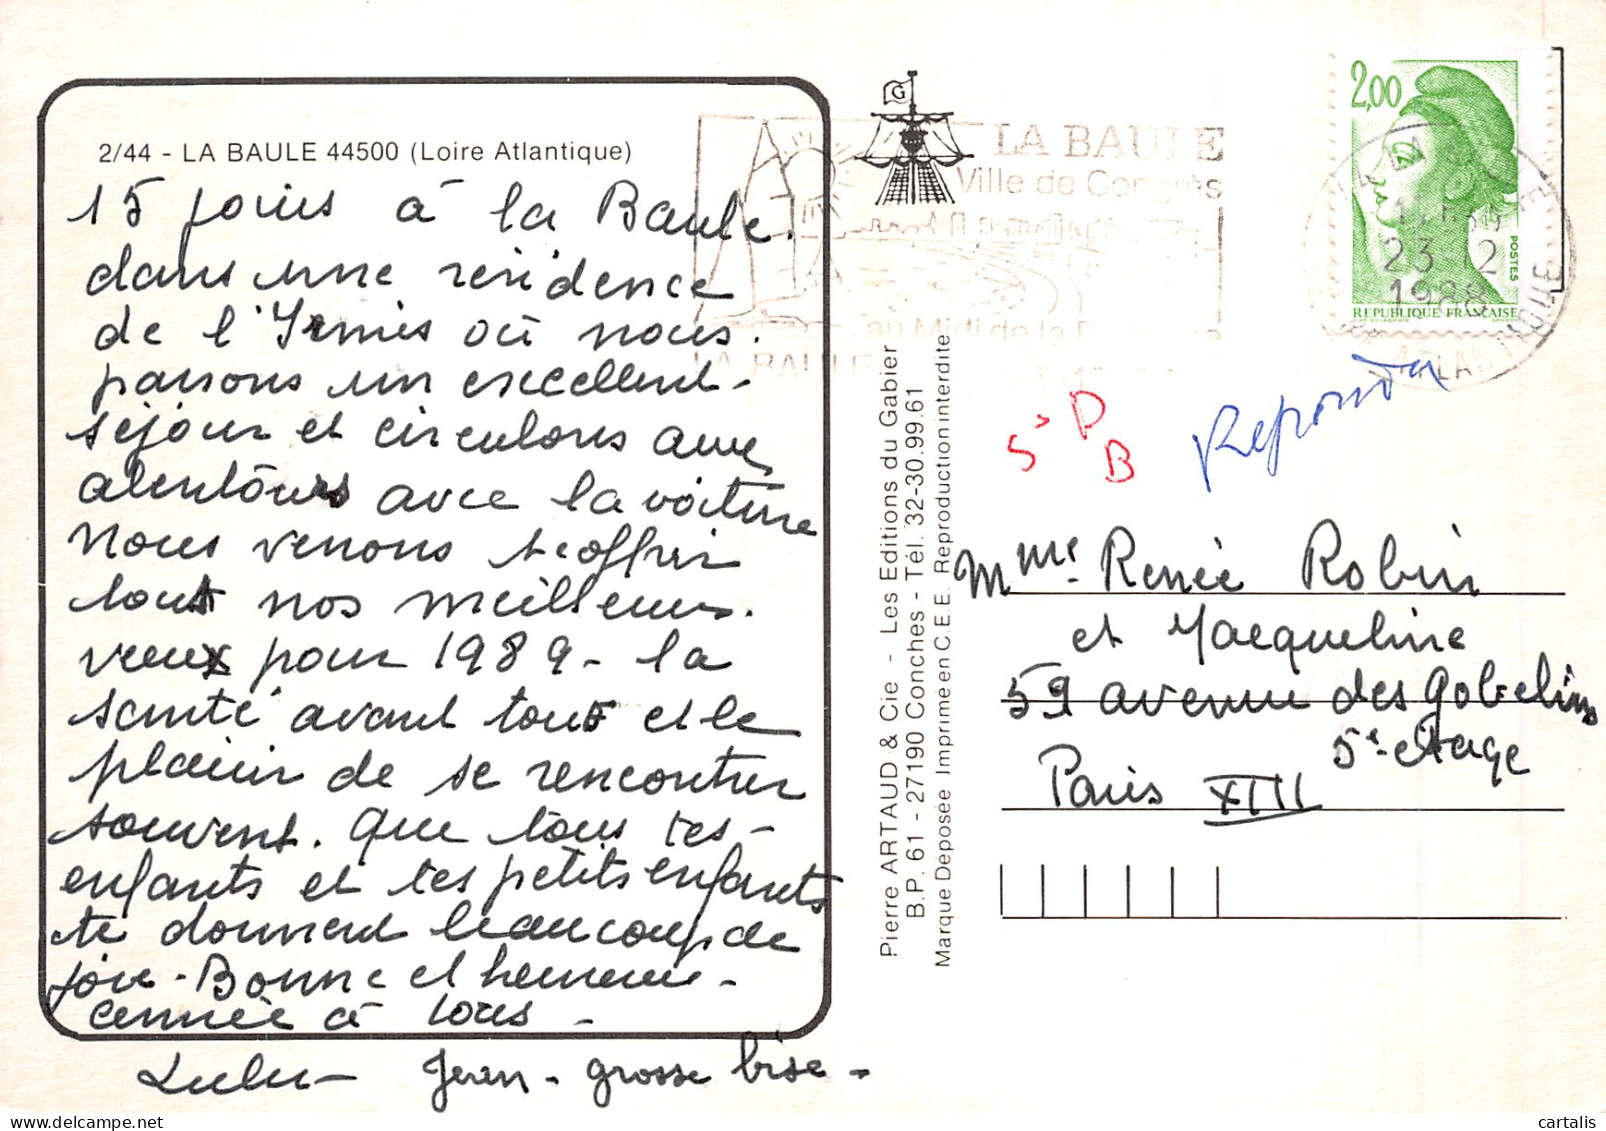 2/44 - LA BAULE 44500 (Loire Atlantique)
15 jours à la Baule.
dans une résidence
de l'Irmis où nous.
passons un excellent-
séjour et circulons aux
alentours avec la voiture
Nous venons t'offrir
tout nos meilleurs.
veux pour 1989 - la
santé avant tout et le
plaisir de se rencontrer
souvent. Que tous tes-
enfants et tes petits enfants
te donnent beaucoup de
joie - Bonne et heureuse -
année à tous -
Lulu - Jean - grosse bise -
Pierre ARTAUD & Cie - Les Editions du Gabier
B.P. 61 - 27190 Conches - Tél. 32-30.99.61
Marque Déposée Imprimé en C.E.E. Reproduction interdite
G
LA BAULE
Ville de Congrès
au Midi de la
LA BAULE
2,00
POSTES
REPUBLIQUE FRANÇAISE
23-12
1988
ATLANTIQUE
5 P
B
Repondu
Mme. Renée Robin
et Jacqueline
59 avenue des Gobelins
5e étage
Paris XIII
cartalis